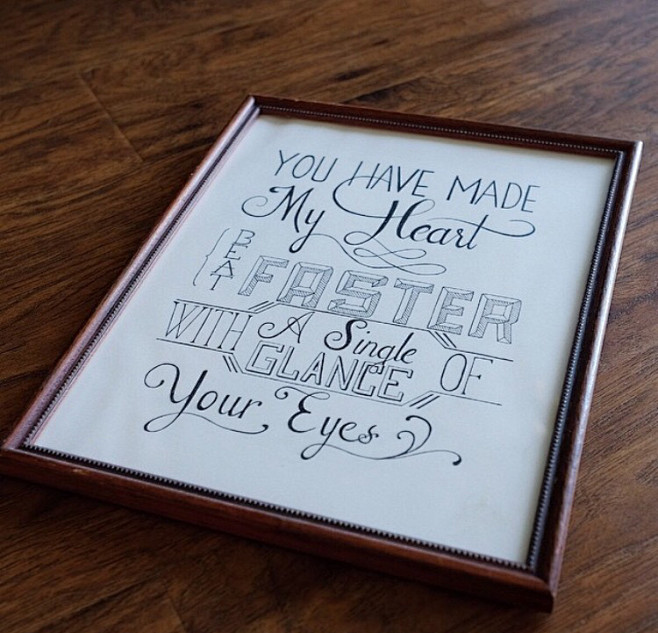 YOU HAVE MADE
My Heart
BEAT FASTER
WITH A Single GLANCE OF
Your Eyes